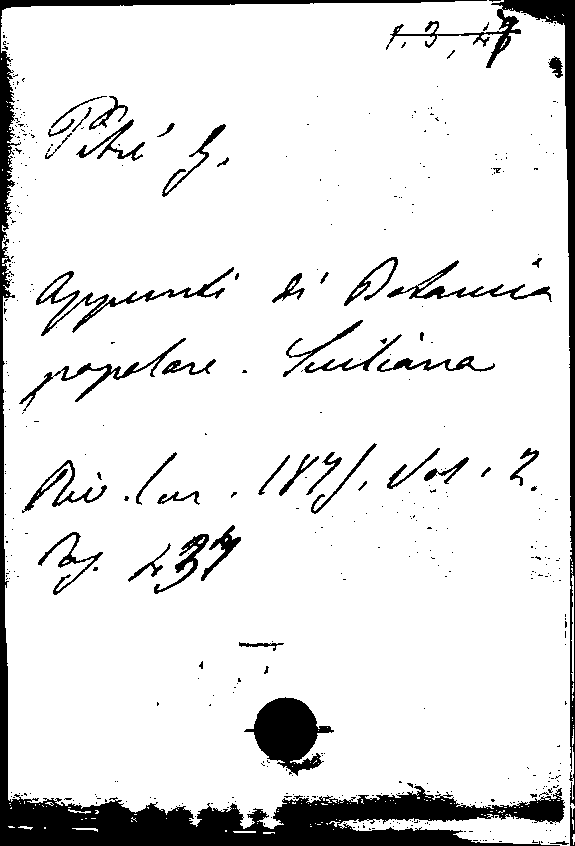 1. 3, 47
Pitré G.
Appunti di Botanica
popolare. Siciliana
Riv. 1875. Vol. 2.
Pag. 437